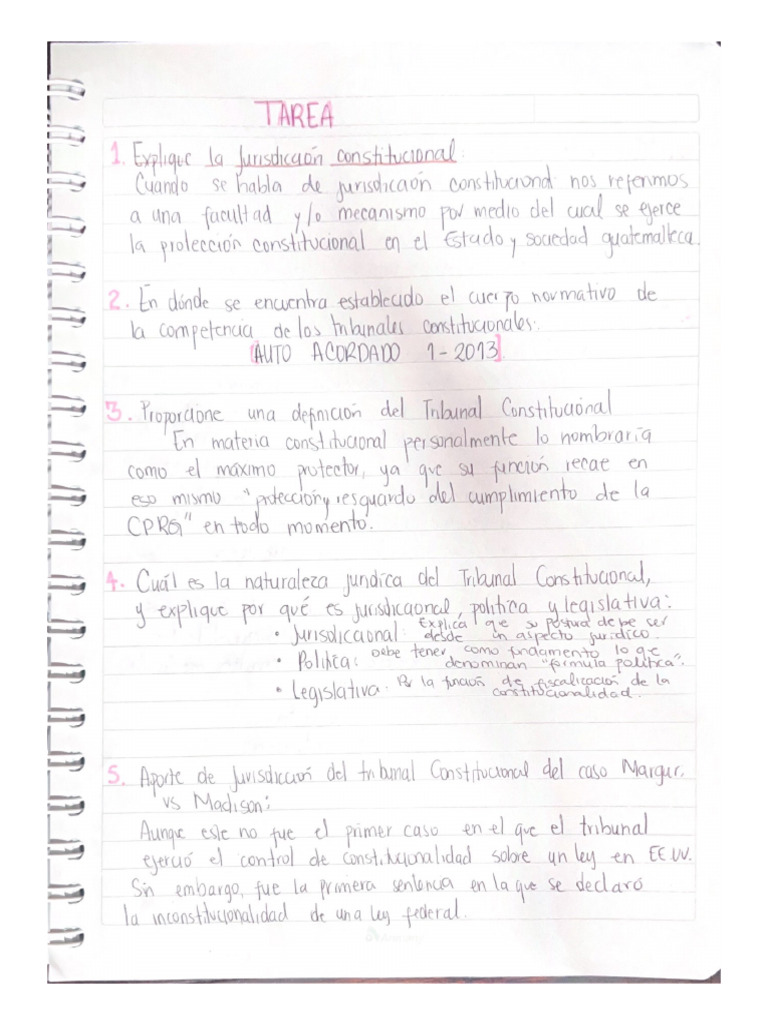 TAREA
1. Explique la Jurisdicción constitucional:
Cuando se habla de jurisdicción constitucional nos referimos
a una facultad y/o mecanismo por medio del cual se ejerce
la protección constitucional en el Estado y sociedad guatemalteca.
2. En dónde se encuentra establecido el cuerpo normativo de
la competencia de los tribunales constitucionales:
[AUTO ACORDADO 1-2013].
3. Proporcione una definición del Tribunal Constitucional
En materia constitucional personalmente lo nombraría
como el máximo protector, ya que su función recae en
eso mismo "protección y resguardo del cumplimiento de la
CPRG" en todo momento.
4. Cuál es la naturaleza jurídica del Tribunal Constitucional,
y explique por qué es jurisdiccional, política y legislativa:
• Jurisdiccional: Explica que su postura debe ser
desde un aspecto jurídico.
• Política: Debe tener como fundamento lo que
denominan "formula política".
• Legislativa: Por la función de fiscalización de la
constitucionalidad.
5. Aporte de Jurisdicción del tribunal Constitucional del caso Margur.
vs Madison:
Aunque este no fue el primer caso en el que el tribunal
ejerció el control de constitucionalidad sobre un ley en EE.UU.
Sin embargo, fue la primera sentencia en la que se declaró
la inconstitucionalidad de una ley federal.